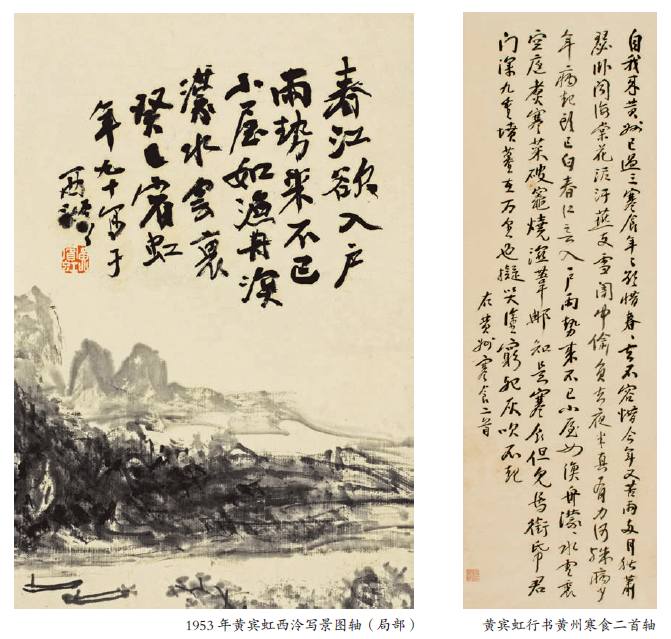 春江欲入户
雨勢來不已
小屋如漁舟溟
濛水雲裏
癸巳賓虹
年九十写于
西泠
1953年黄宾虹西泠写景图轴（局部）
自我来黄州已過三寒食年々欲惜春々去不容惜今年又苦雨兩月秋蕭
瑟卧聞海棠花泥汙燕支雪闇中偷負去夜半真有力何殊病少
年病起頭已白春江欲入户雨勢来不已小屋如漁舟濛々水雲裏
空庖煮寒菜破竈燒溼葦那知是寒食但見烏銜帋君
門深九重墳墓在万里也擬哭塗窮死灰吹不起
右黄州寒食二首
黄宾虹行书黄州寒食二首轴